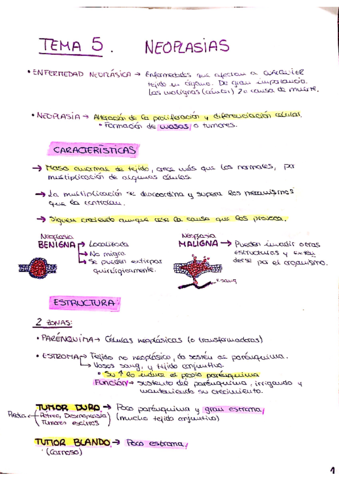 TEMA 5. NEOPLASIAS
• ENFERMEDAD NEOPLÁSICA → Enfermedades que afectan a cualquier
tejido u órgano. De gran importancia.
Las malignas (cáncer) 2º causa de muerte.
• NEOPLASIA → Alteración de la proliferación y diferenciación celular.
• Formación de masas o tumores.
CARACTERÍSTICAS
→ Masa anormal de tejido, crece más que los normales, por
multiplicación de algunas células.
→ La multiplicación es descoordina y supera los mecanismos
que la controlan.
→ Siguen creciendo aunque cese la causa que las provoca.
Neoplasia
BENIGNA → Localizada
→ No migra
→ Se pueden extirpar
quirúrgicamente.
Neoplasia
MALIGNA → Pueden invadir otras
estructuras y
derse por el organismo.
sang
ESTRUCTURA
2 ZONAS:
• PARÉNQUIMA → Células neoplásicas (o transformadoras)
• ESTROMA → Tejido no neoplásico, da sostén al parénquima.
→ Vasos sang. y tejido conjuntivo.
• Su ↑ lo induce el propio parénquima
Función → sustento del parénquima, irrigando y
manteniendo su crecimiento.
TUMOR DURO → Poco parénquima y gran estroma,
(mucho tejido conjuntivo)
Tumores
TUMOR BLANDO → Poco estroma,
(carnoso)
1